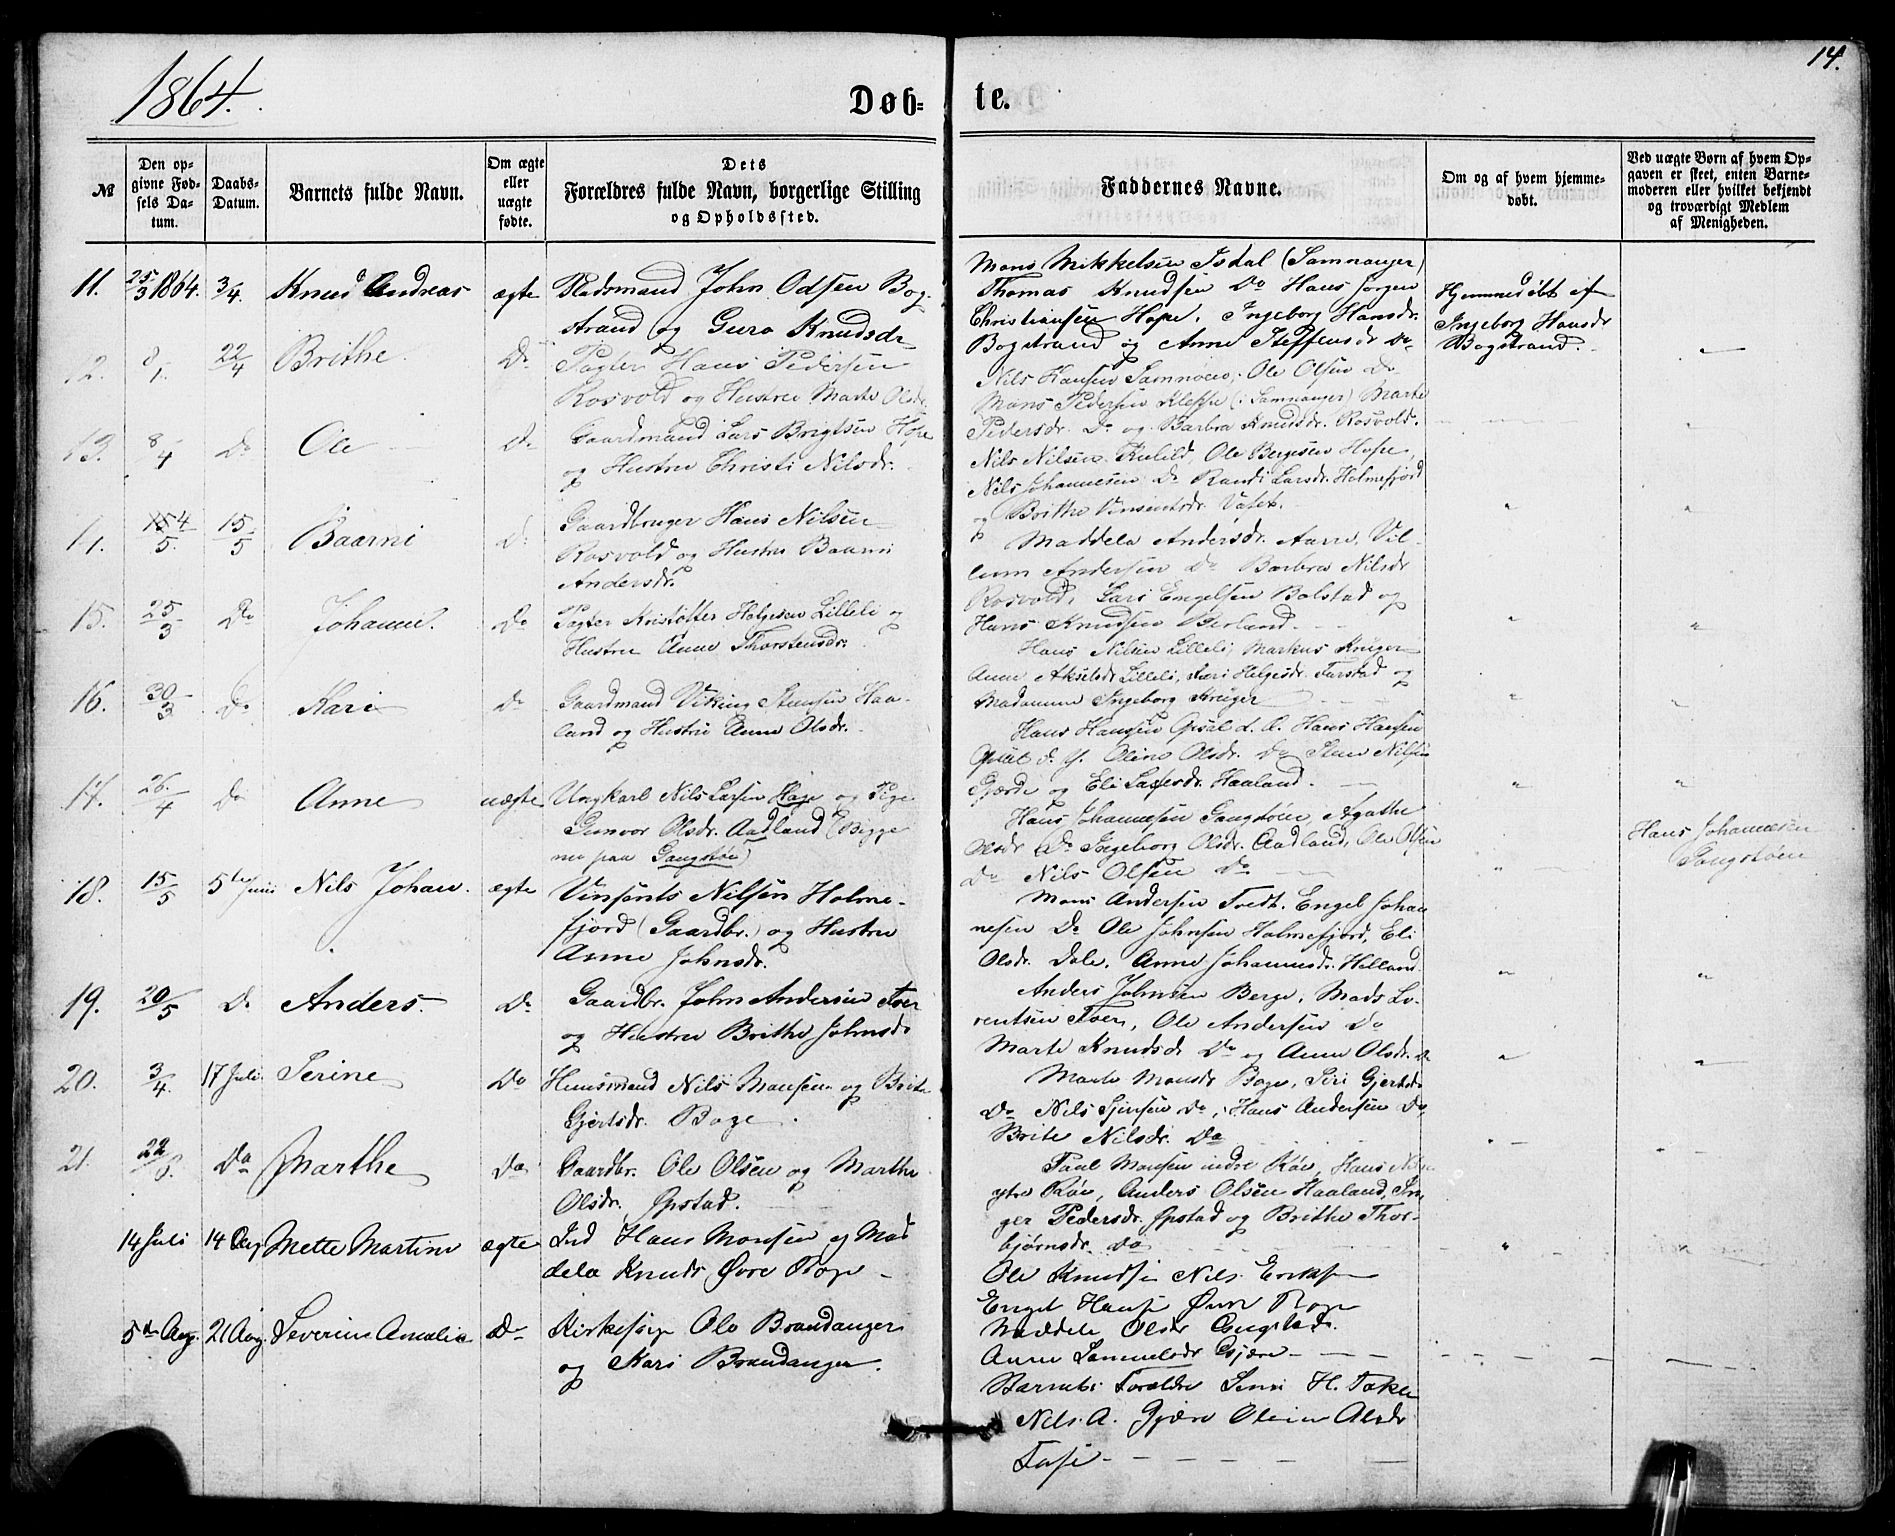 14.
1864.
Døb- te.
№
Den op-
givne Fød-
sels Da-
tum.
Daabs-
Datum.
Barnets fulde Navn.
Om ægte
eller
uægte
fødte.
Dets
Forældres fulde Navn, borgerlige Stilling
og Opholdssted.
Faddernes Navne.
Om og af hvem hjemme-
døbt.
Ved uægte Børn af hvem Op-
gaven er skeet, enten Barne-
moderen eller hvilket bekjendt
og troværdigt Medlem
af Menigheden.
11. 25/3 1864. 3/4 Knud Andreas ægte Pladsmand John Odsen Bog-
strand og Guro Knudsdr
Mons Mikkelsen Isdal (Samnanger)
Thomas Knudsen Do Hans Jørgen
Christiansen Hope, Ingeborg Hansdr.
Bogstrand og Anne Steffensdr Do
Hjemmedöbt af
Ingeborg Hansdr
Bogstrand.
12. 8/1. 22/4 Brithe Do Pagter Hans Pedersen
Rosvold og Hustru Marte Olsdr.
Nils Hansen Samnøen, Ole Olsen Do
Mons Pedersen Kleppe (i Samnanger) Marte
Pedersdr. Do og Barbra Knudsdr. Rosvold.
13. 8/4 Do Ole Do Gaardmand Lars Brigtsen Hope
og Hustru Christi Nilsdr.
Nils Nilsen Kulild, Ole Børgesen Hope,
Nils Johannesen Do Randi Larsdr. Holmefjord
og Brithe Vinsentsdr. Vatet.
14. 4/5. 15/5 Baarni Do Gaardbruger Hans Nilsen
Rosvold og Hustru Baarni
Andersdr.
Maddela Andersdr. Aarre, Vil-
lum Andersen Do Barbra Nilsdr
Rosvold, Lars Engelsen Bolstad og
Hans Knudsen Berland
15. 25/3 Do Johanne. Do Pagter Kristoffer Helgesen Lilleli og
Hustru Anne Thorstensdr.
Hans Nilsen Lilleli, Markus Krüger
Anne Akselsdr Lilleli, Kari Helgesdr. Farstad og
Madamme Ingeborg Krüger
16. 30/3 Do Kari Do Gaardmand Viking Steensen Haa-
land og Hustru Anne Olsdr.
Hans Hansen Gjøsæl d. Æ. Hans Hansen
d. Y. Oline Olsdr. Do Steen Nilsen
Gjærde og Eli Larsdr. Haaland.
17. 26/4 Do Anne uægte Ungkarl Nils Larsen Hage og Pige
Gunvor Olsdr. Aadland (Begge
nu paa Gangstøe)
Hans Johannesen Gangstøen, Agathe
Olsdr Do Ingeborg Olsdr. Aadland, Ole Olsen
Do Nils Olsen Do
Hans Johannesen
Gangstøen
18. 15/5 5te Juni Nils Johan. ægte Vinsents Nilsen Holme-
fjord (Gaardbr.) og Hustru
Anne Johnsdr.
Mons Andersen Tvedt. Engel Johan
nesen Do Ole Johnsen Holmefjord, Eli
Olsdr. Dale, Anne Johannesdr. Helland.
19. 20/5 Do Anders. Do Gaardbr. John Andersen Tver
og Hustru Brithe Johnsdr
Anders Johnsen Berge, Mads Lo-
rentsen Tver, Ole Andersen Do
Marte Knudsdr Do og Anne Olsdr. Do
20. 3/4. 17 Juli. Serine Do Huusmand Nils Monsen og Brite
Gjertsdr. Boge.
Marte Monsdr Boge, Siri Gjertsdr
Do Nils Do, Hans Andersen Do,
Brite Nilsdr. Do
21. 22/6. Do Marthe Do Gaardbr. Ole Olsen og Marthe
Olsdr. Øpstad.
Paal Monsen indre Røe, Hans Nils
ytre Røe, Anders Olsen Haaland, In-
ger Pedersdr. Øpstad og Brithe Thor-
bjørnsdr. Do
14 Juli 14 Aug Mette Martine ægte Ind Hans Monsen og Mad
dela Knuds Øvre Boge
Ole Knudsen Nils Eriksen
Engel Hansen Øvre Boge
Maddela Olsdr
Anne Samuelsdr Gjære
5te Aug. 21 Aug. Severine Amalia Do Kirkesanger Ole Brandanger
og Kari Brandanger.
Barnets Forældre H.
Nils A. Gjære Oline Olsdr